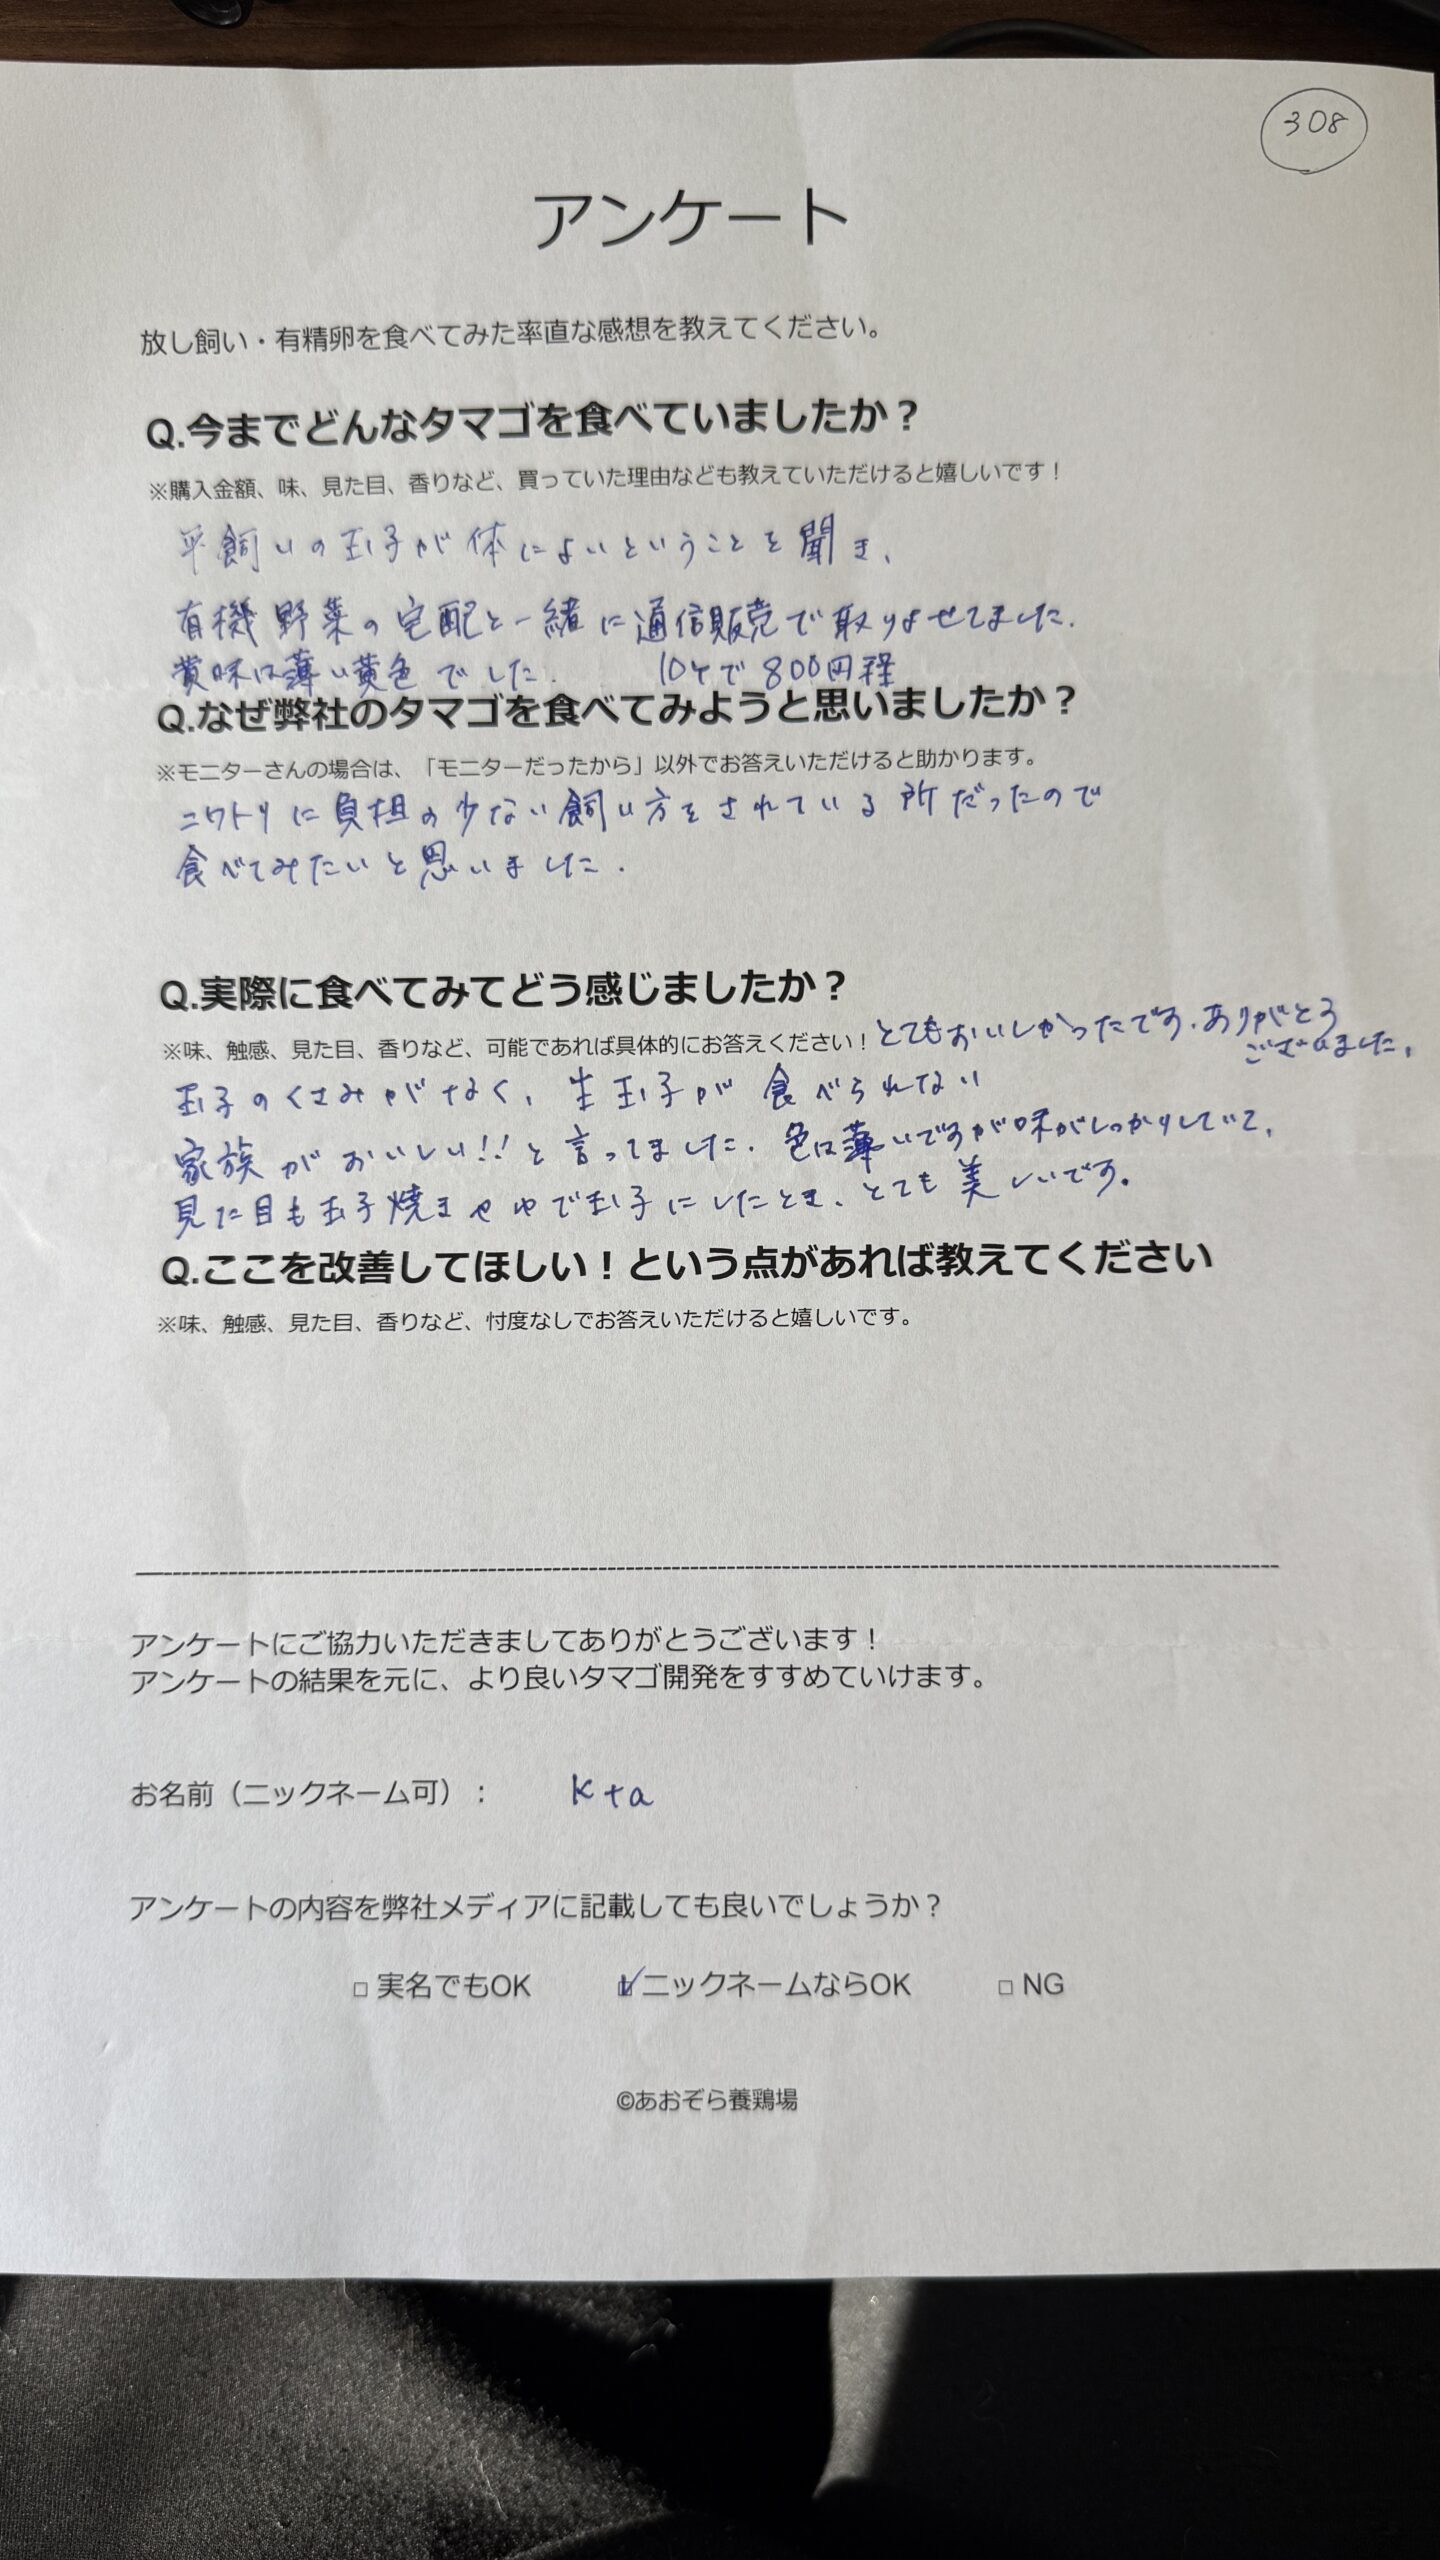 308
アンケート
放し飼い・有精卵を食べてみた率直な感想を教えてください。
Q.今までどんなタマゴを食べていましたか？
※購入金額、味、見た目、香りなど、買っていた理由なども教えていただけると嬉しいです！
平飼いの玉子が体によいということを聞き、
有機野菜の宅配と一緒に通信販売で取りよせてました.
黄味は薄い黄色でした. 10ケで800円程
Q.なぜ弊社のタマゴを食べてみようと思いましたか？
※モニターさんの場合は、「モニターだったから」以外でお答えいただけると助かります。
ニワトリに負担の少ない飼い方をされている所だったので
食べてみたいと思いました.
Q.実際に食べてみてどう感じましたか？
※味、触感、見た目、香りなど、可能であれば具体的にお答えください！とてもおいしかったです.ありがとう
ございました.
玉子のくさみがなく、生玉子が食べられない
家族がおいしい!!と言ってました.色は薄いですが味がしっかりしていて、
見た目も玉子焼きやゆで玉子にしたとき、とても美しいです。
Q.ここを改善してほしい！という点があれば教えてください
※味、触感、見た目、香りなど、忖度なしでお答えいただけると嬉しいです。
アンケートにご協力いただきましてありがとうございます！
アンケートの結果を元に、より良いタマゴ開発をすすめていけます。
お名前（ニックネーム可）： K+a
アンケートの内容を弊社メディアに記載しても良いでしょうか？
□ 実名でもOK ☑ ニックネームならOK □ NG
©あおぞら養鶏場